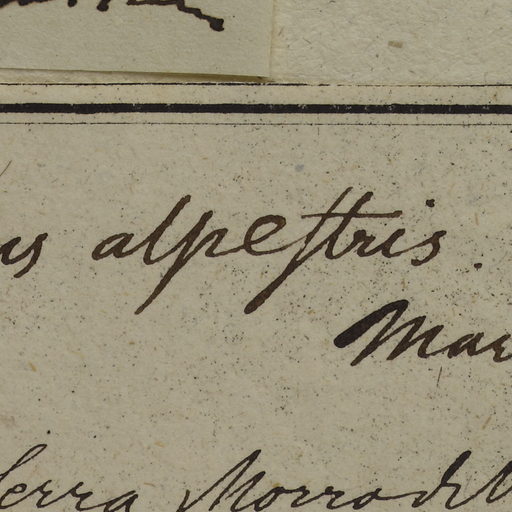 us alpestris.
Mar
Serra Morro d